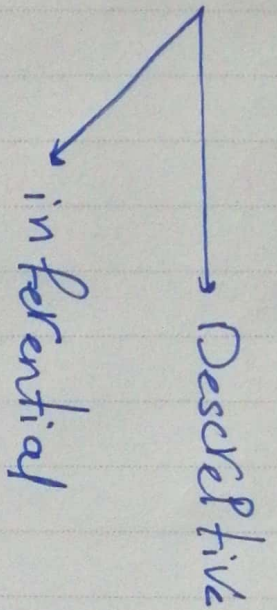 Descreptive
inferential